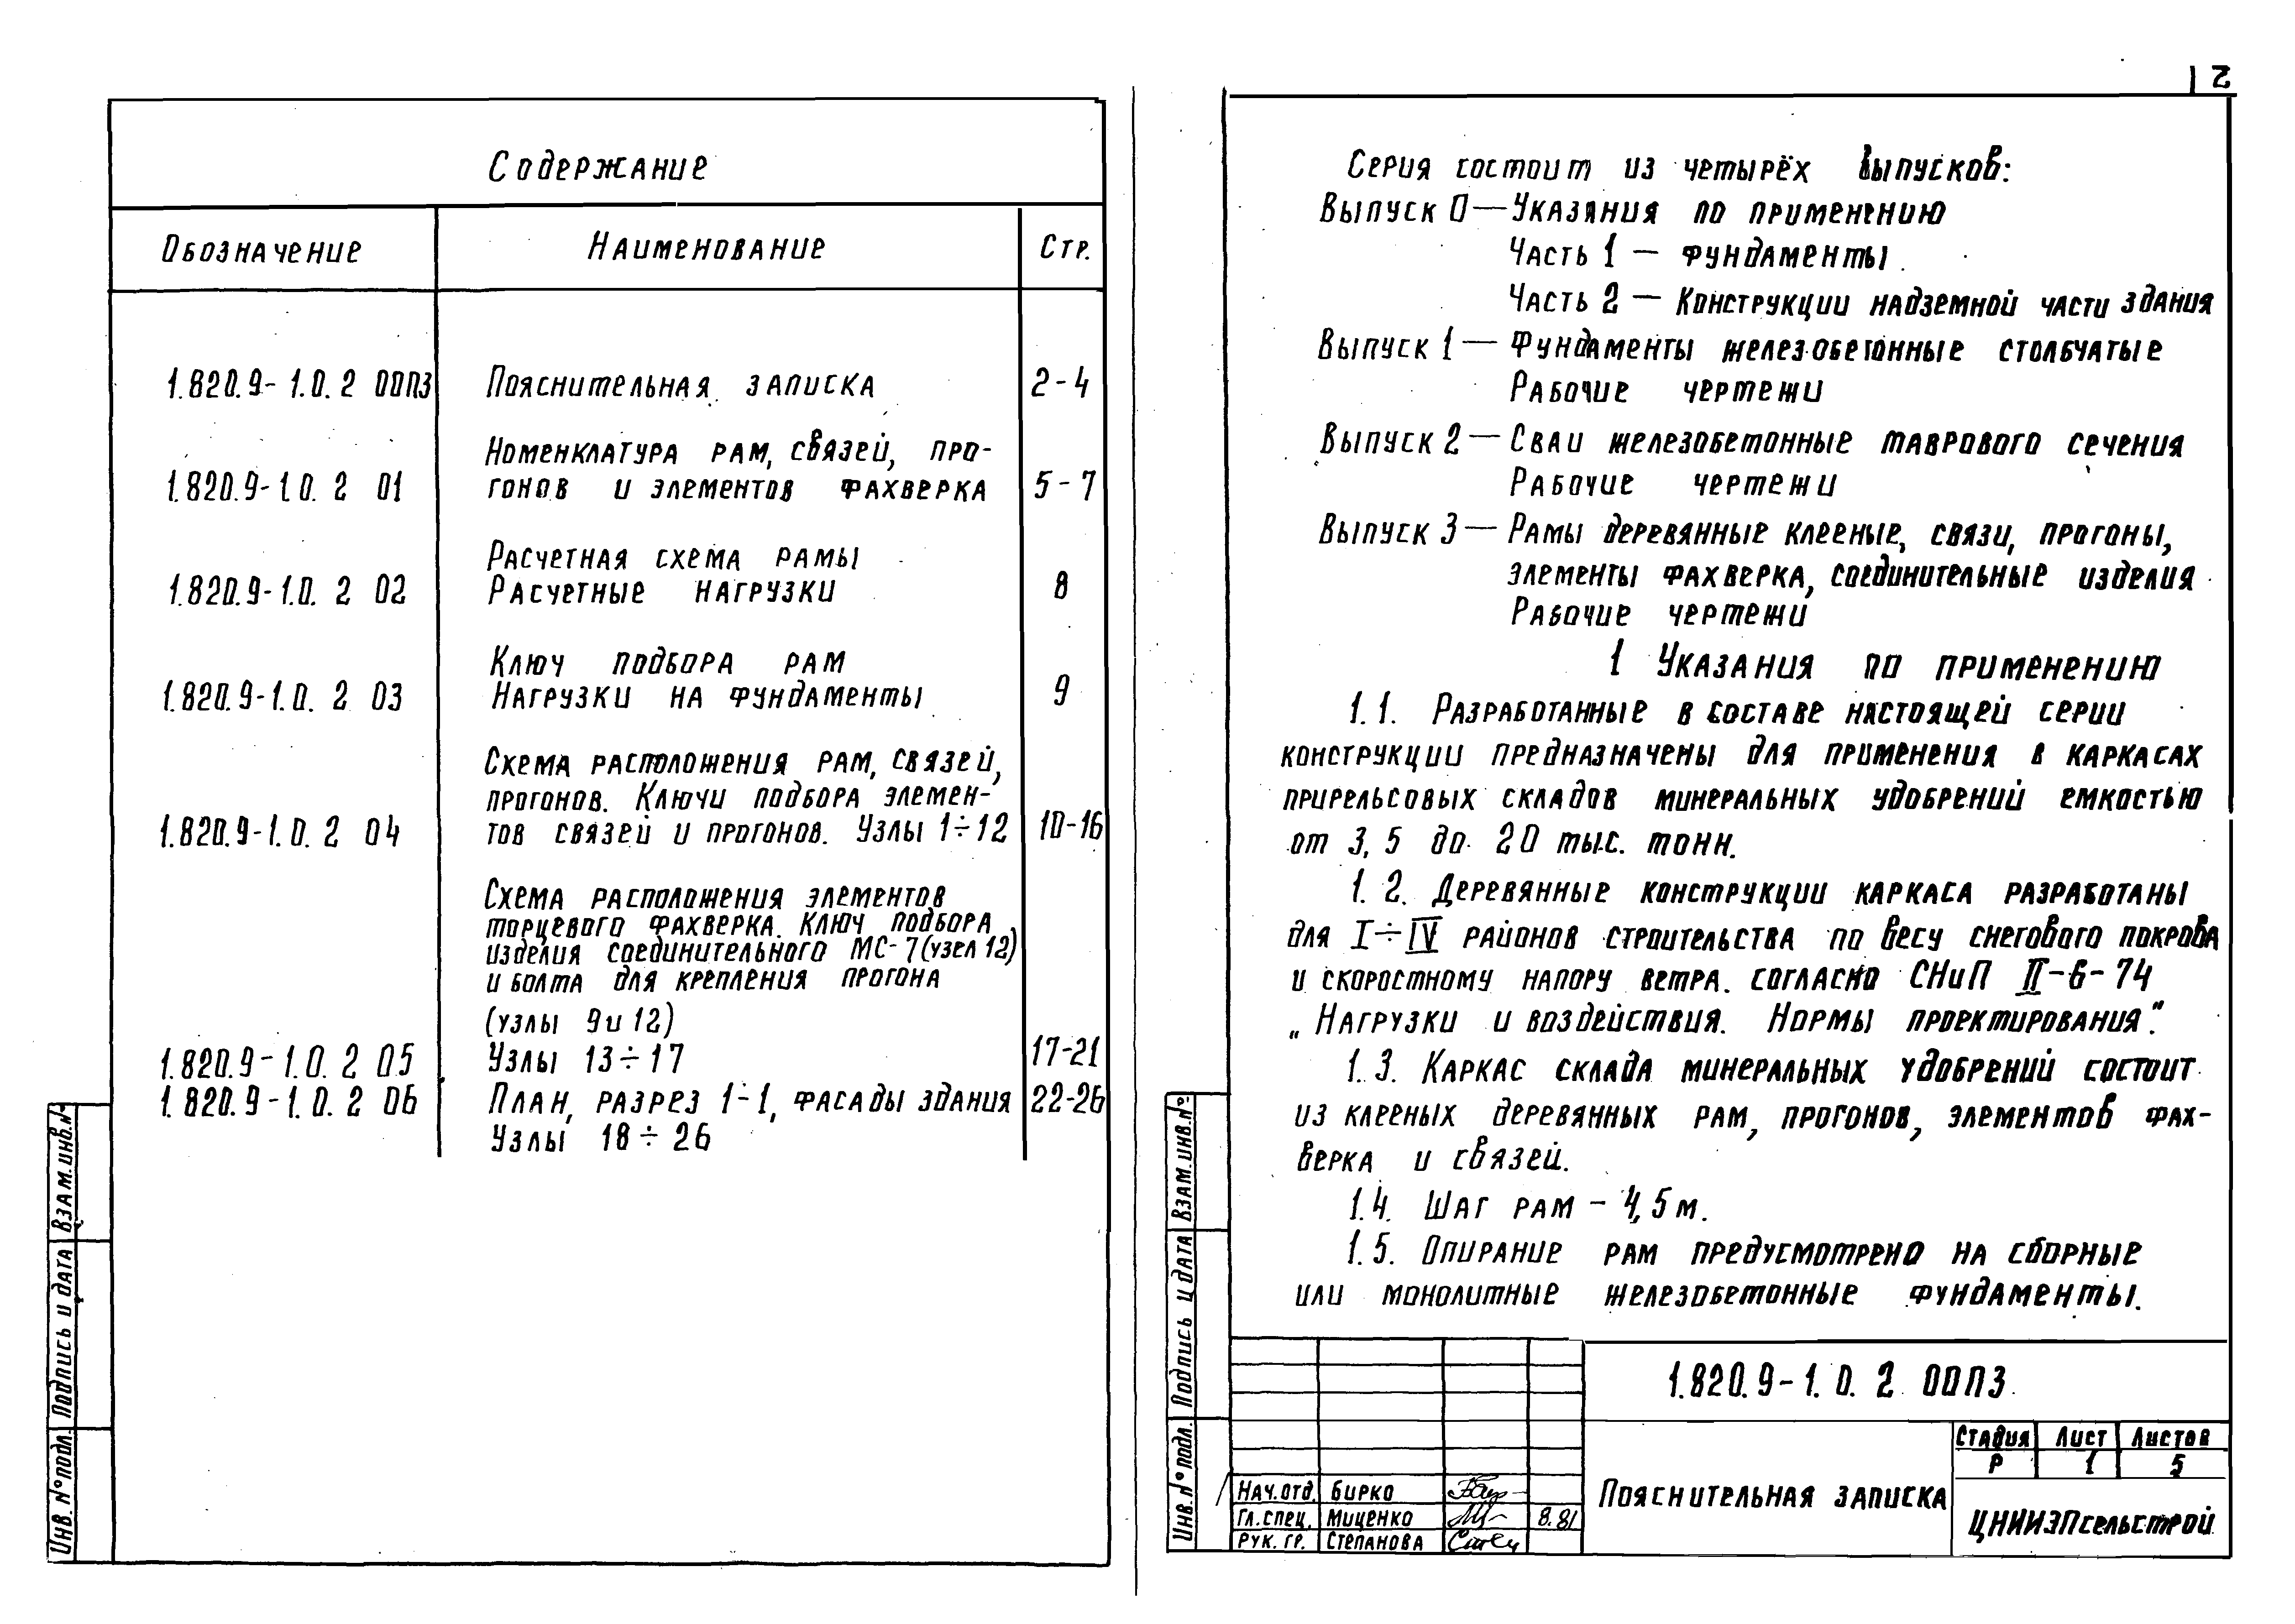 Содержание
Обозначение Наименование Стр.
1.820.9-1.0.2 00ПЗ Пояснительная записка 2-4
Номенклатура рам, связей, про-
1.820.9-1.0.2 01 гонов и элементов фахверка 5-7
Расчетная схема рамы
1.820.9-1.0.2 02 Расчетные нагрузки 8
Ключ подбора рам
1.820.9-1.0.2 03 Нагрузки на фундаменты 9
Схема расположения рам, связей,
прогонов. Ключи подбора элемен-
1.820.9-1.0.2 04 тов связей и прогонов. Узлы 1÷12 10-16
Схема расположения элементов
торцевого фахверка. Ключ подбора
изделия соединительного МС-7 (узел 12)
и болта для крепления прогона
(узлы 9 и 12)
1.820.9-1.0.2 05 Узлы 13÷17 17-21
1.820.9-1.0.2 06 План, разрез 1-1, фасады здания 22-26
Узлы 18÷26
Взам. инв. №
Подпись и дата
Инв. № подл.
2
Серия состоит из четырёх выпусков:
Выпуск 0 — Указания по применению
Часть 1 — фундаменты
Часть 2 — Конструкции надземной части здания
Выпуск 1 — Фундаменты железобетонные столбчатые
Рабочие чертежи
Выпуск 2 — Сваи железобетонные таврового сечения
Рабочие чертежи
Выпуск 3 — Рамы деревянные клееные, связи, прогоны,
элементы фахверка, соединительные изделия
Рабочие чертежи
1 Указания по применению
1.1. Разработанные в составе настоящей серии
конструкции предназначены для применения в каркасах
прирельсовых складов минеральных удобрений емкостью
от 3,5 до 20 тыс. тонн.
1.2. Деревянные конструкции каркаса разработаны
для I÷IV районов строительства по весу снегового покрова
и скоростному напору ветра. согласно СНиП II-6-74
„Нагрузки и воздействия. Нормы проектирования".
1.3. Каркас склада минеральных удобрений состоит
из клееных деревянных рам, прогонов, элементов фах-
верка и связей.
1.4. Шаг рам - 4,5м.
1.5. Опирание рам предусмотрено на сборные
или монолитные железобетонные фундаменты.
Взам. инв. №
Подпись и дата
Инв. № подл.
1.820.9-1.0.2 00ПЗ
Пояснительная записка
Стадия Лист Листов
Р 1 5
ЦНИИЭПсельстрой
Нач. отд. Бирко
Гл. спец. Миценко 8.81
Рук. гр. Степанова